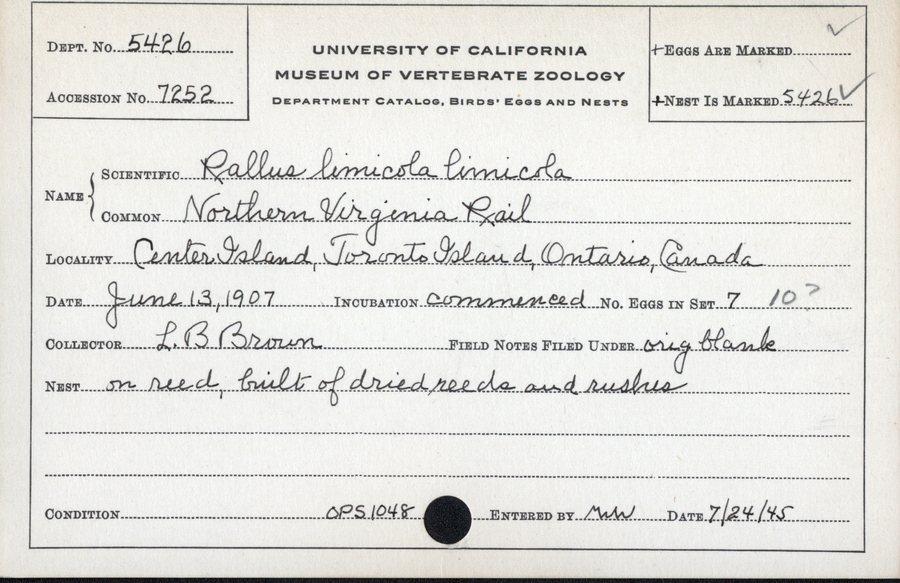 DEPT. No. 5426
ACCESSION No. 7252
UNIVERSITY OF CALIFORNIA
MUSEUM OF VERTEBRATE ZOOLOGY
DEPARTMENT CATALOG, BIRDS' EGGS AND NESTS
+EGGS ARE MARKED ✓
+NEST IS MARKED 5426 ✓
NAME { SCIENTIFIC Rallus limicola limicola
COMMON Northern Virginia Rail
LOCALITY Center Island, Toronto Island, Ontario, Canada
DATE June 13, 1907 INCUBATION commenced No. EGGS IN SET 7 10?
COLLECTOR L. B Brown FIELD NOTES FILED UNDER orig blank
NEST on reed, built of dried reeds and rushes
CONDITION OPS 1048 ENTERED BY DATE 7/24/45